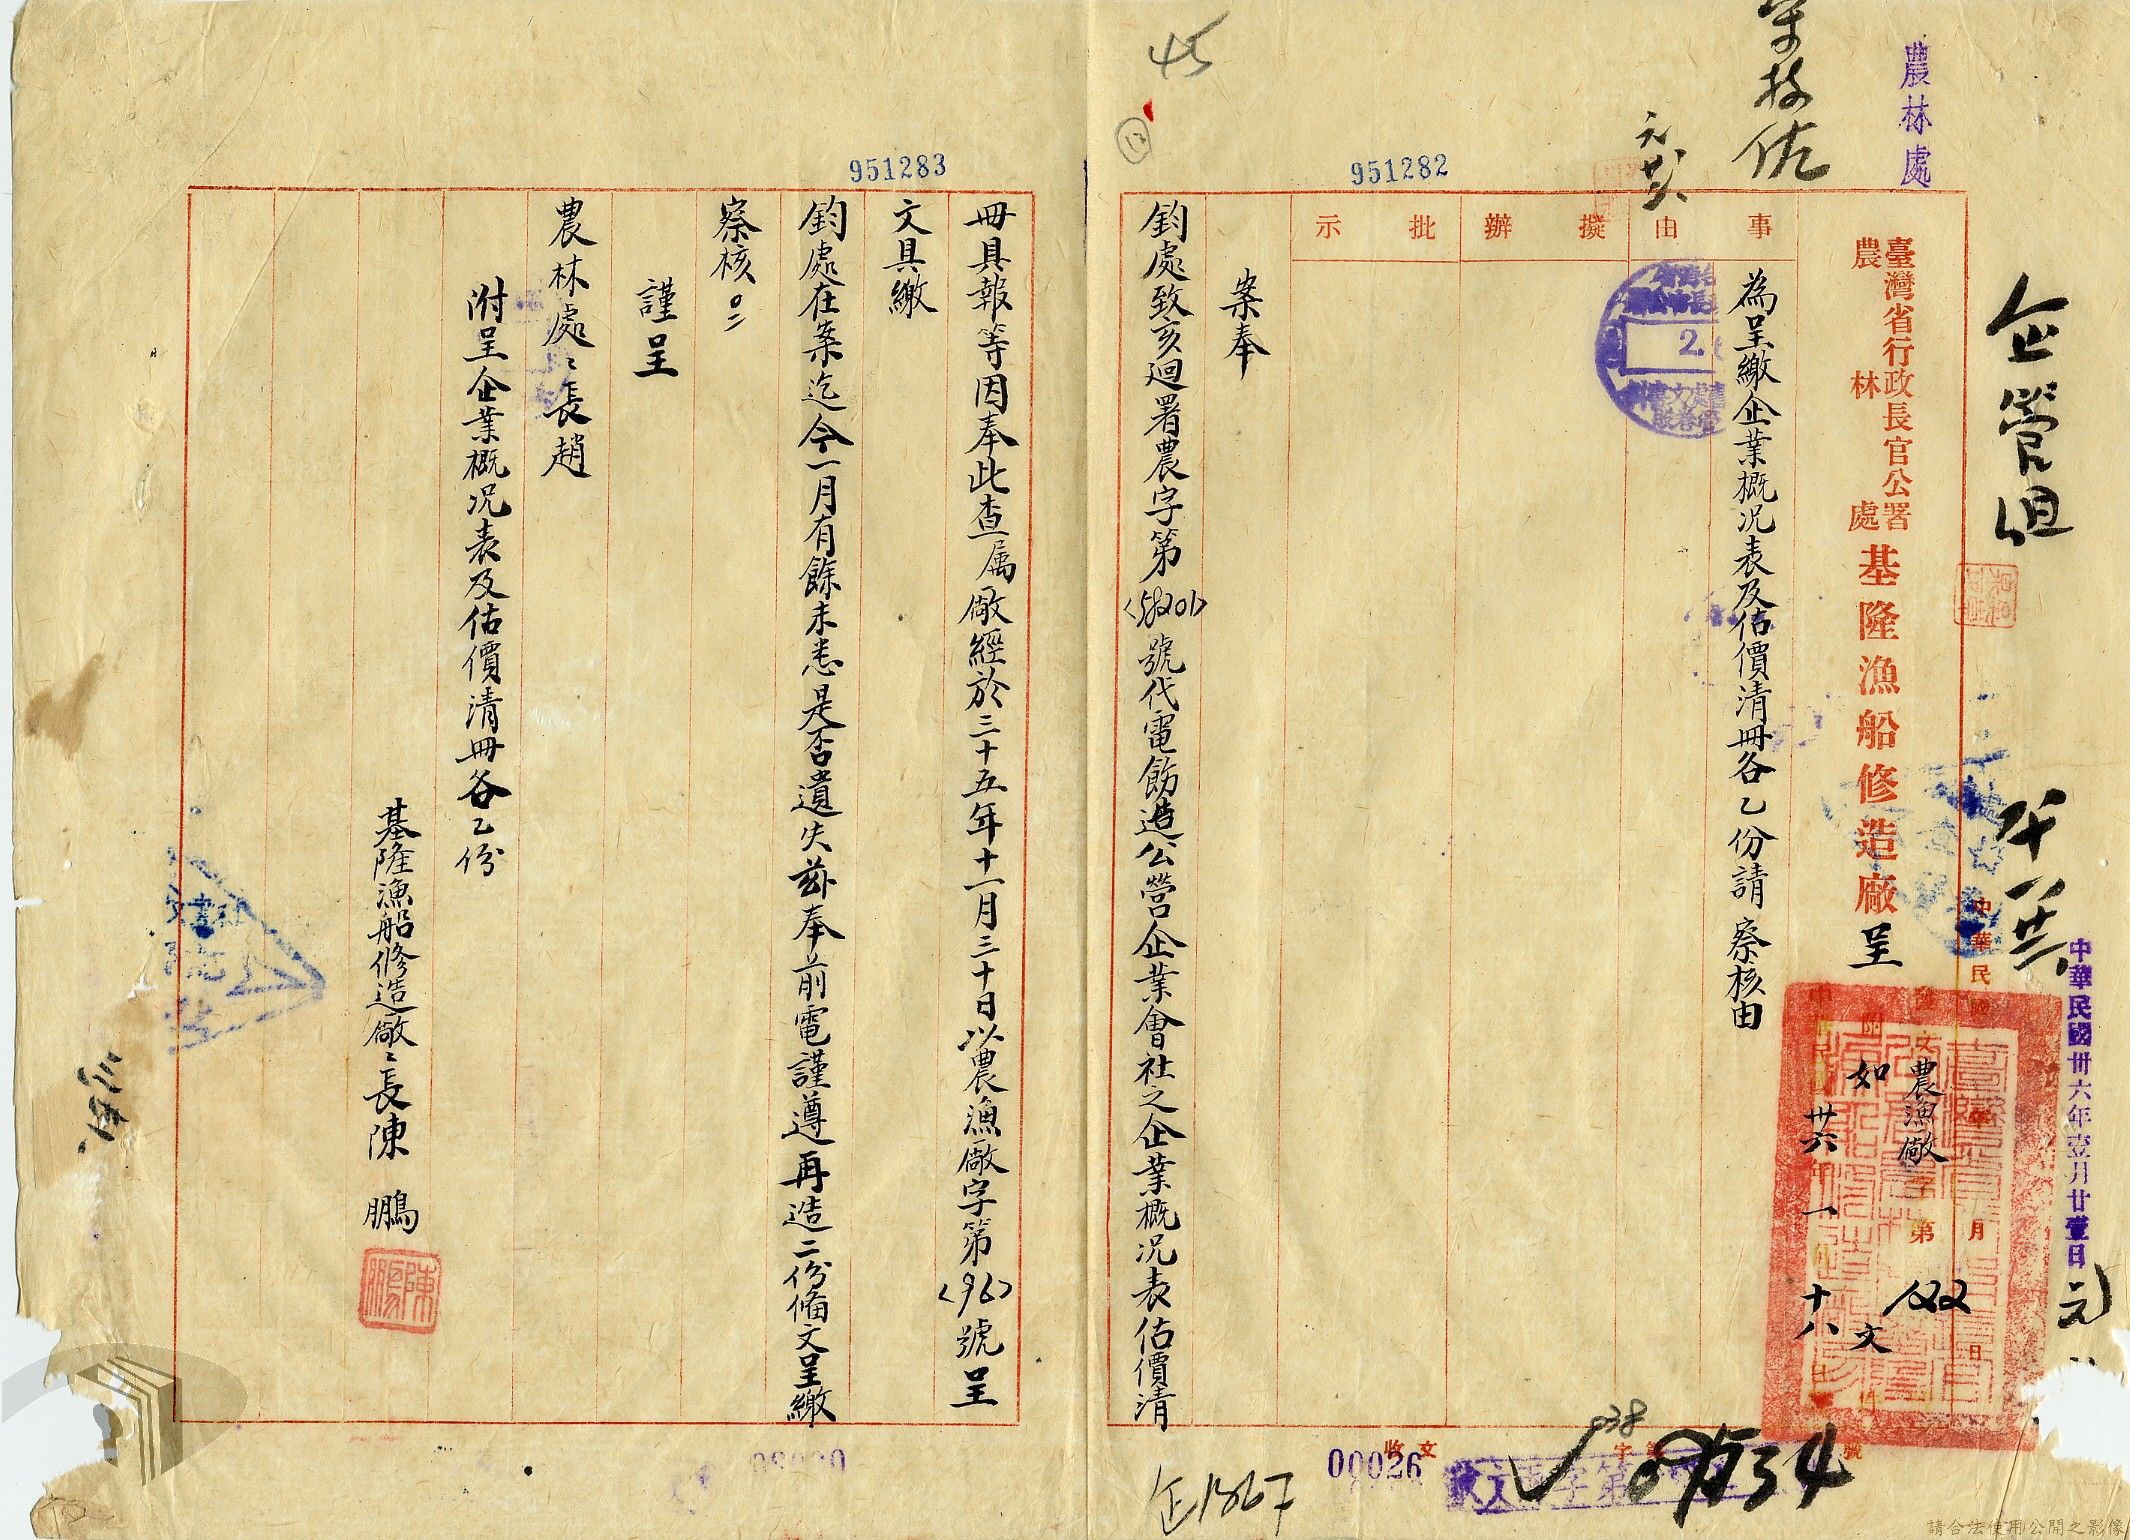 農林處
企管組
臺灣省行政長官公署
農林處
基隆漁船修造廠呈
中華民國卅六年壹月廿壹日
中華民國 年 月 日
農漁廠字第 號
如文
卅六年一月十八日
事由
擬辦
批示
為呈繳企業概況表及估價清冊各乙份請 察核由
案奉
鈞處致亥迴署農字第 號代電飭造公營企業會社之企業概況表估價清
冊具報等因奉此查属廠經於三十五年十一月三十日以農漁廠字第<96>號呈
文具繳
鈞處在案迄今一月有餘未悉是否遺失茲奉前電謹遵再造二份備文呈繳
察核。
謹呈
農林處處長趙
附呈企業概況表及估價清冊各乙份
基隆漁船修造廠廠長陳 鵬
陳鵬
951282
951283
45
12
2.
收文 字第 號
00026
038
企1867
請合法使用公開之影像